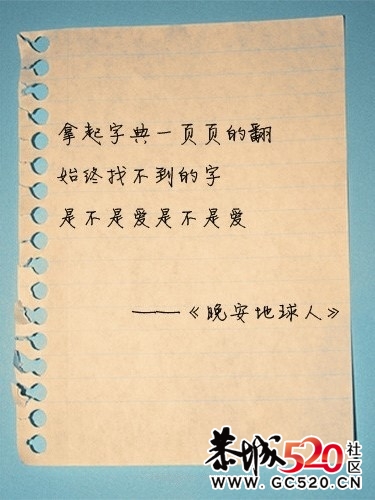 拿起字典一页页的翻
始终找不到的字
是不是爱是不是爱
——《晚安地球人》
恭城520社区
WWW.GC520.CN